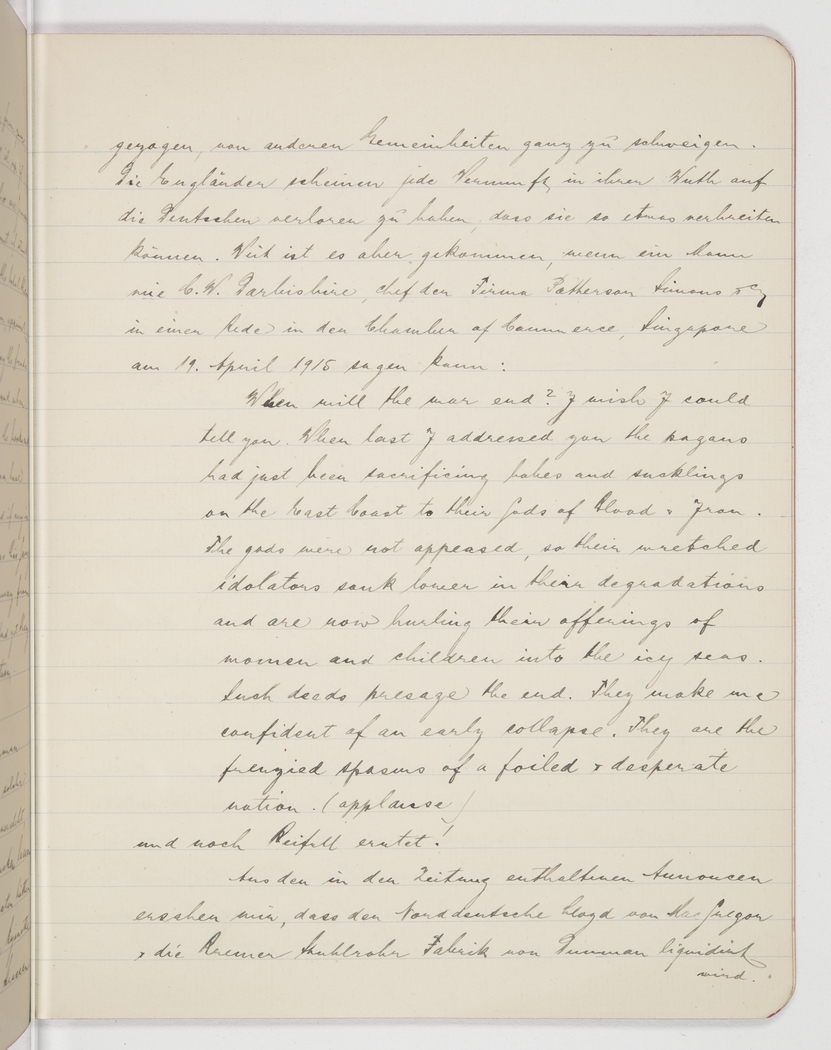 gezogen, von anderen Gemeinheiten ganz zu schweigen.
Die Engländer scheinen jede Vernunft in ihrer Wuth auf
die Deutschen verloren zu haben, dass sie so etwas verbreiten
können. Weit ist es aber gekommen, wenn ein Mann
wie C. W. Darbishire, Chef der Firma Patterson Simons & Cy
in einer Rede in der Chamber of Commerce, Singapore
am 19. April 1915 sagen kann:
When will the war end? I wish I could
tell you. When last I addressed you the pagans
had just been sacrificing babes and sucklings
on the East Coast to their Gods of Blood & Iron.
The gods were not appeased, so their wretched
idolators sank lower in their degradations
and are now hurling their offerings of
women and children into the icy seas.
Such deeds presage the end. They make me
confident of an early collapse. They are the
frenzied spasms of a foiled & desperate
nation. (applause)
und noch Beifall erntet!
Aus den in der Zeitung enthaltenen Annoncen
ersehen wir, dass der Norddeutsche Lloyd von MacGregor
& die Bremer Stuhlrohr Fabrik von Dunman liquidirt
wird.